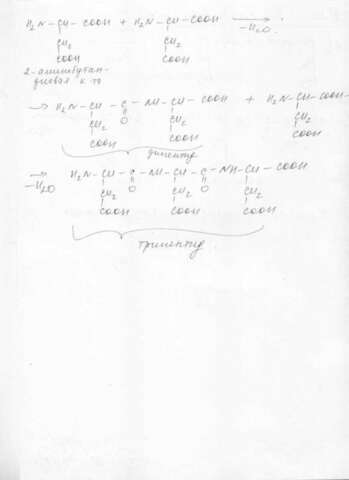 H₂N - CH - COOH + H₂N - CH - COOH ⟶
CH₂ CH₂ -H₂O
COOH COOH
2-аминобутан-
диовая к-та
→ H₂N - CH - C - NH - CH - COOH + H₂N - CH - COOH
CH₂ O CH₂ CH₂
COOH COOH COOH
дипептид
→ H₂N - CH - C - NH - CH - C - NH - CH - COOH
-H₂O CH₂ O CH₂ O CH₂
COOH COOH COOH
трипептид